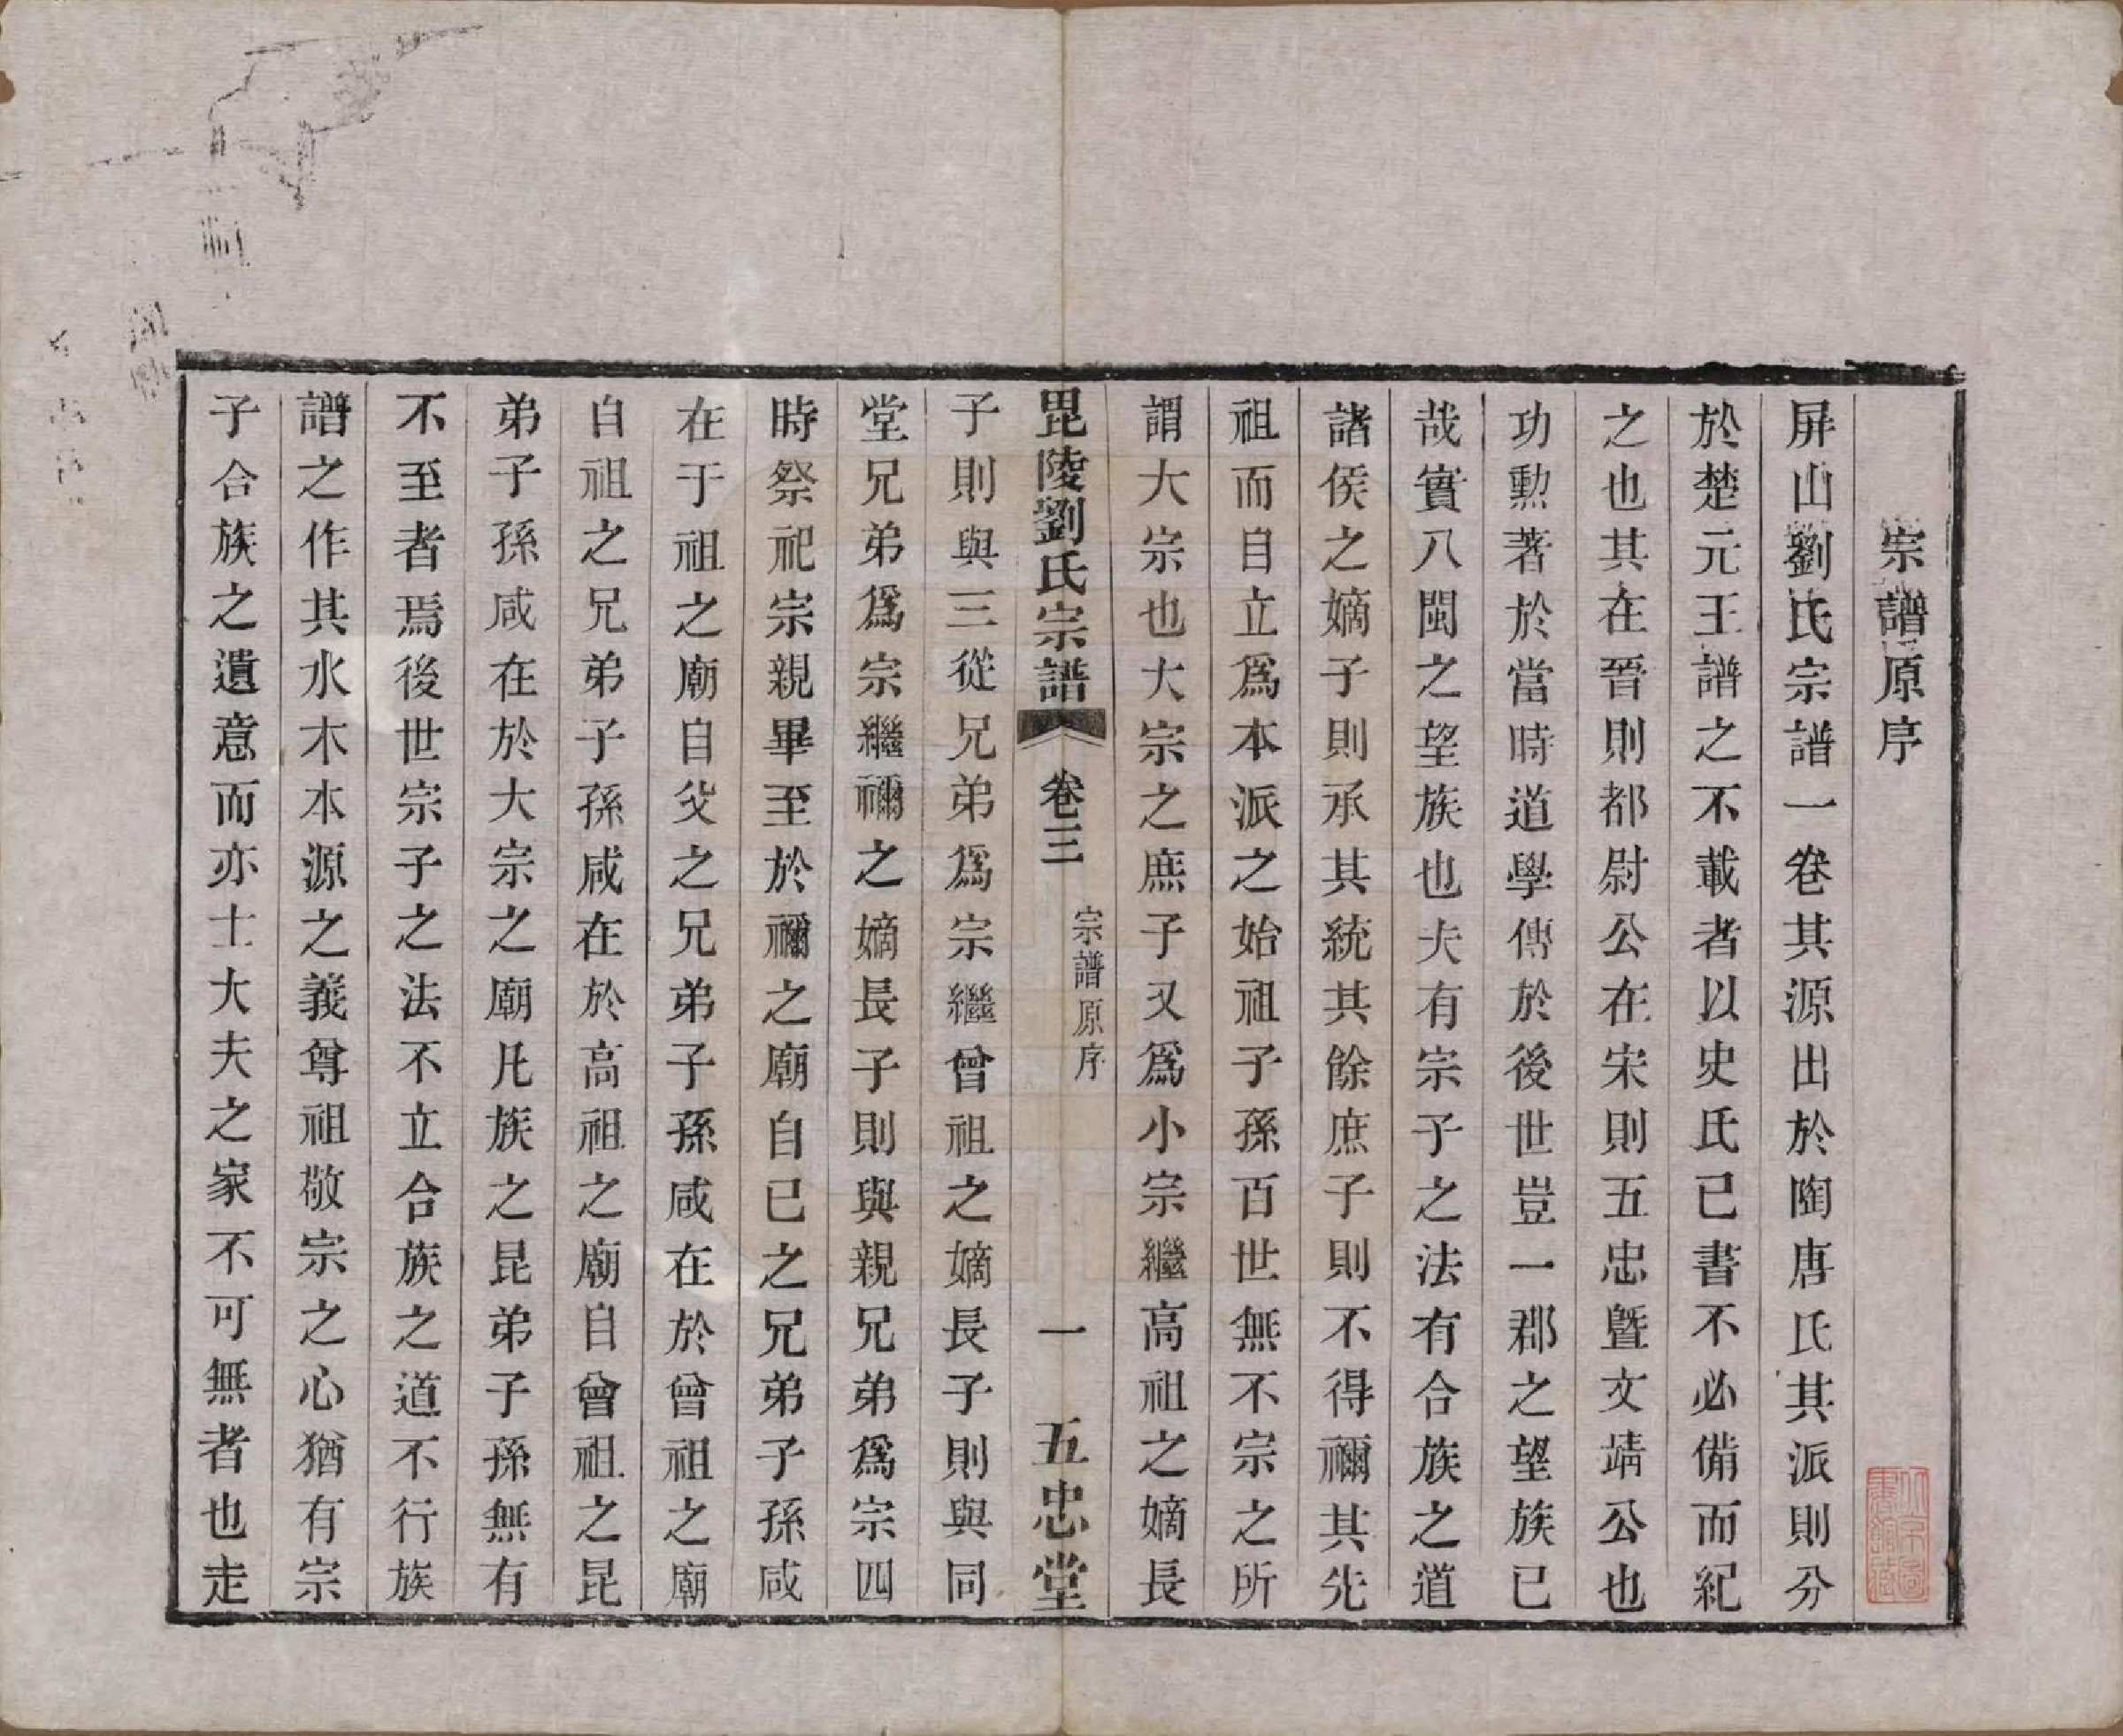 宗譜原序
屏山劉氏宗譜一卷其源出於陶唐氏其派則分
於楚元王譜之不載者以史氏已書不必備而紀
之也其在晋則都尉公在宋則五忠曁文靖公也
功勲著於當時道學傳於後世豈一郡之望族已
哉實八閩之望族也夫有宗子之法有合族之道
諸侯之嫡子則承其統其餘庶子則不得禰其先
祖而自立爲本派之始祖子孫百世無不宗之所
謂大宗也大宗之庶子又爲小宗繼高祖之嫡長
毘陵劉氏宗譜 卷三 宗譜原序 一 五忠堂
子則與三從兄弟爲宗繼曾祖之嫡長子則與同
堂兄弟爲宗繼禰之嫡長子則與親兄弟爲宗四
時祭祀宗親畢至於禰之廟自已之兄弟子孫咸
在于祖之廟自父之兄弟子孫咸在於曾祖之廟
自祖之兄弟子孫咸在於高祖之廟自曾祖之昆
弟子孫咸在於大宗之廟凡族之昆弟子孫無有
不至者焉後世宗子之法不立合族之道不行族
譜之作其水木本源之義尊祖敬宗之心猶有宗
子合族之遺意而亦士大夫之家不可無者也走